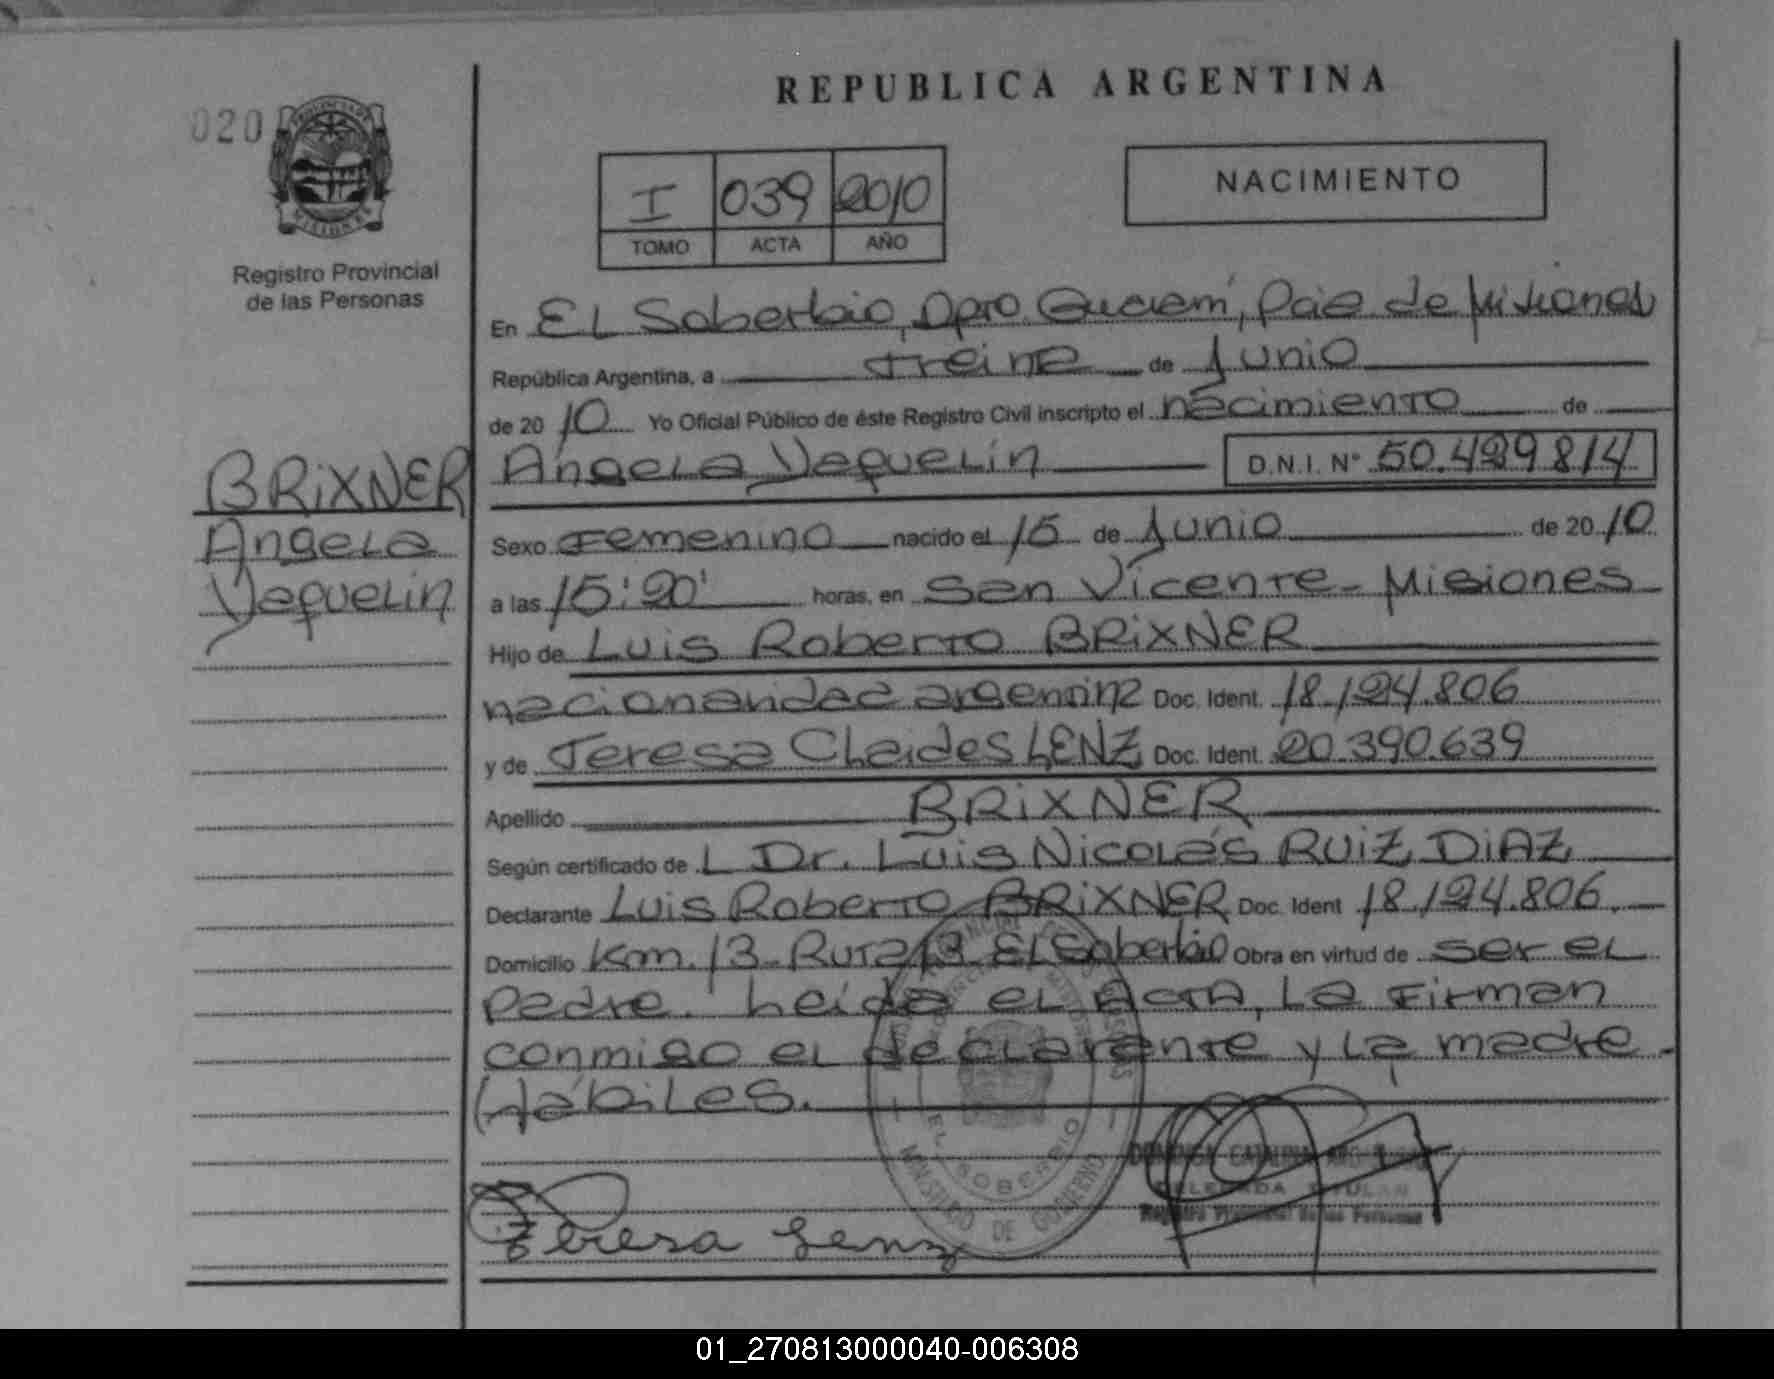 REPUBLICA ARGENTINA
020
PROVINCIA DE
MISIONES
Registro Provincial
de las Personas
I 039 2010
TOMO ACTA AÑO
NACIMIENTO
En El Soberbio, Dpto Guaraní, Pcia de Misiones
República Argentina, a treinta de Junio
de 2010 Yo Oficial Público de éste Registro Civil inscripto el nacimiento de
Ángela Yaquelín D.N.I. Nº 50.429814
BRiXNER
Ángela
Yaquelín
Sexo Femenino nacido el 15 de Junio de 2010
a las 15:20' horas, en San Vicente - Misiones
Hijo de Luis Roberto BRiXNER
nacionalidad argentina Doc. Ident. 18.124.806
y de Teresa Claides LENZ Doc. Ident. 20.390.639
Apellido BRiXNER
Según certificado de L Dr. Luis Nicolás RUiZ DiAZ
Declarante Luis Roberto BRiXNER Doc. Ident 18.124.806.
Domicilio Km. 13 - Ruta 13 El Soberbio Obra en virtud de ser el
padre. Leída el ACTA, la firman
conmigo el declarante y la madre.
Hábiles.
EL SOBERBIO
MINISTERIO DE GOBIERNO
DELEGADA TITULAR
Registro Provincial de las Personas
Teresa Lenz
01_270813000040-006308